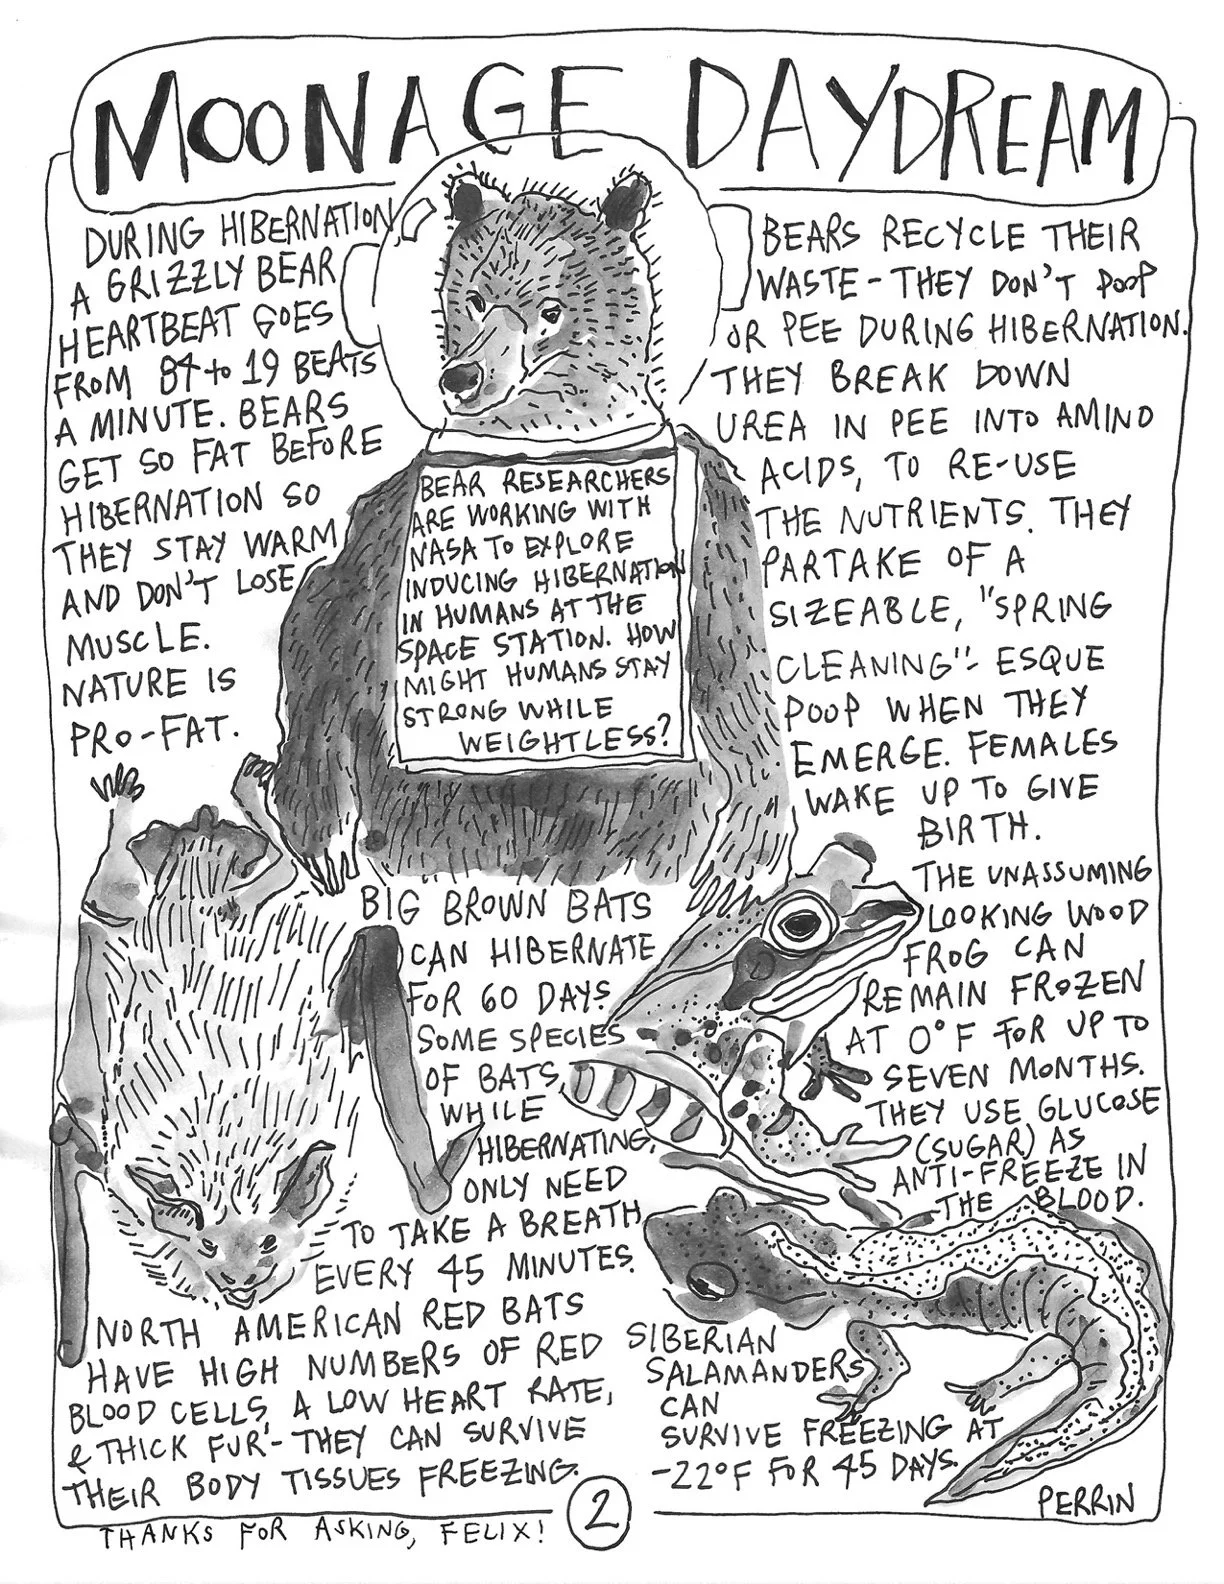 MOONAGE DAYDREAM
DURING HIBERNATION,
A GRIZZLY BEAR
HEARTBEAT GOES
FROM 84 to 19 BEATS
A MINUTE. BEARS
GET SO FAT BEFORE
HIBERNATION SO
THEY STAY WARM
AND DON'T LOSE
MUSCLE.
NATURE IS
PRO-FAT.
BEAR RESEARCHERS
ARE WORKING WITH
NASA TO EXPLORE
INDUCING HIBERNATION
IN HUMANS AT THE
SPACE STATION. HOW
MIGHT HUMANS STAY
STRONG WHILE
WEIGHTLESS?
BEARS RECYCLE THEIR
WASTE - THEY DON'T POOP
OR PEE DURING HIBERNATION.
THEY BREAK DOWN
UREA IN PEE INTO AMINO
ACIDS, TO RE-USE
THE NUTRIENTS. THEY
PARTAKE OF A
SIZEABLE, "SPRING
CLEANING"- ESQUE
POOP WHEN THEY
EMERGE. FEMALES
WAKE UP TO GIVE
BIRTH.
BIG BROWN BATS
CAN HIBERNATE
FOR 60 DAYS.
SOME SPECIES
OF BATS,
WHILE
HIBERNATING,
ONLY NEED
TO TAKE A BREATH
EVERY 45 MINUTES.
THE UNASSUMING
LOOKING WOOD
FROG CAN
REMAIN FROZEN
AT 0°F FOR UP TO
SEVEN MONTHS.
THEY USE GLUCOSE
(SUGAR) AS
ANTI-FREEZE IN
THE BLOOD.
NORTH AMERICAN RED BATS
HAVE HIGH NUMBERS OF RED
BLOOD CELLS, A LOW HEART RATE,
& THICK FUR - THEY CAN SURVIVE
THEIR BODY TISSUES FREEZING.
SIBERIAN
SALAMANDERS
CAN
SURVIVE FREEZING AT
-22°F FOR 45 DAYS.
PERRIN
THANKS FOR ASKING, FELIX!
2